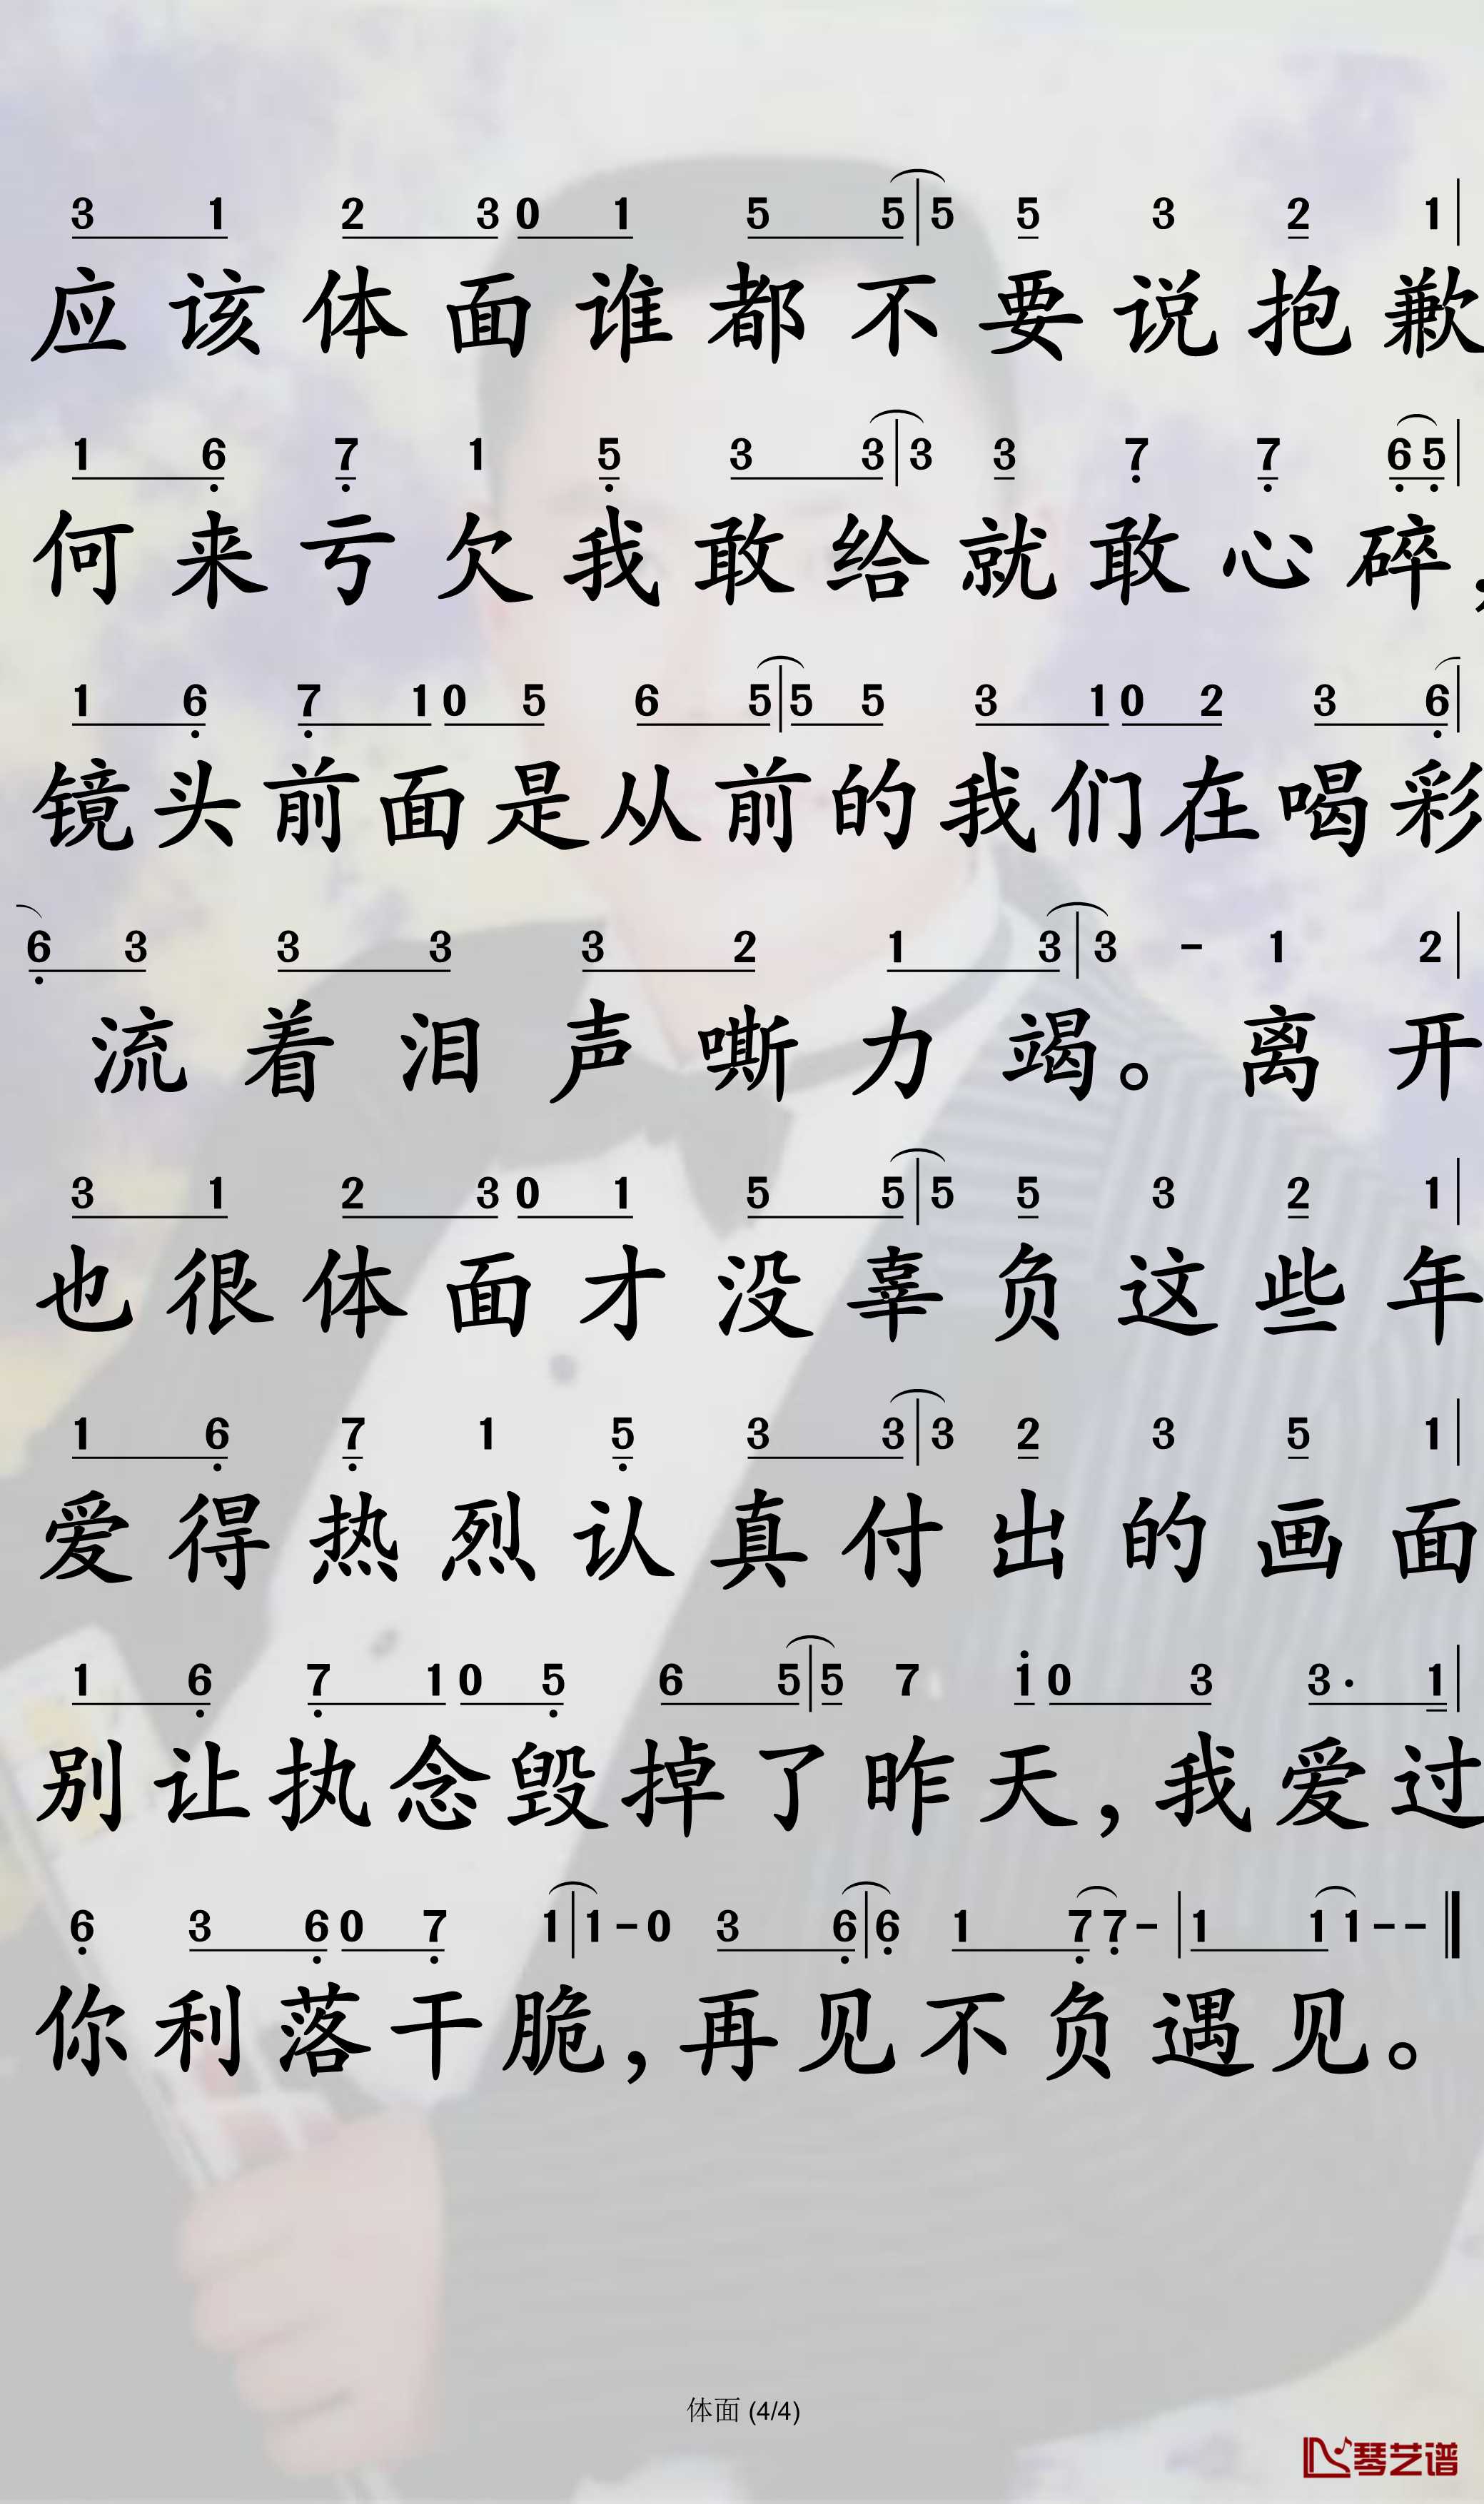 3 1 2 3 0 1 5 5 | 5 5 3 2 1 |
应该体面谁都不要说抱歉
1 6 7 1 5 3 3 | 3 3 7 7 6 5 |
何来亏欠我敢给就敢心碎，
1 6 7 1 0 5 6 5 | 5 5 3 1 0 2 3 6 |
镜头前面是从前的我们在喝彩
6 3 3 3 3 2 1 3 | 3 - 1 2 |
流着泪声嘶力竭。离开
3 1 2 3 0 1 5 5 | 5 5 3 2 1 |
也很体面才没辜负这些年
1 6 7 1 5 3 3 | 3 2 3 5 1 |
爱得热烈认真付出的画面
1 6 7 1 0 5 6 5 | 5 7 1 0 3 3· 1 |
别让执念毁掉了昨天，我爱过
6 3 6 0 7 1 | 1 - 0 3 6 | 6 1 7 7 - | 1 1 1 - -
你利落干脆，再见不负遇见。
体面 (4/4)
琴艺谱